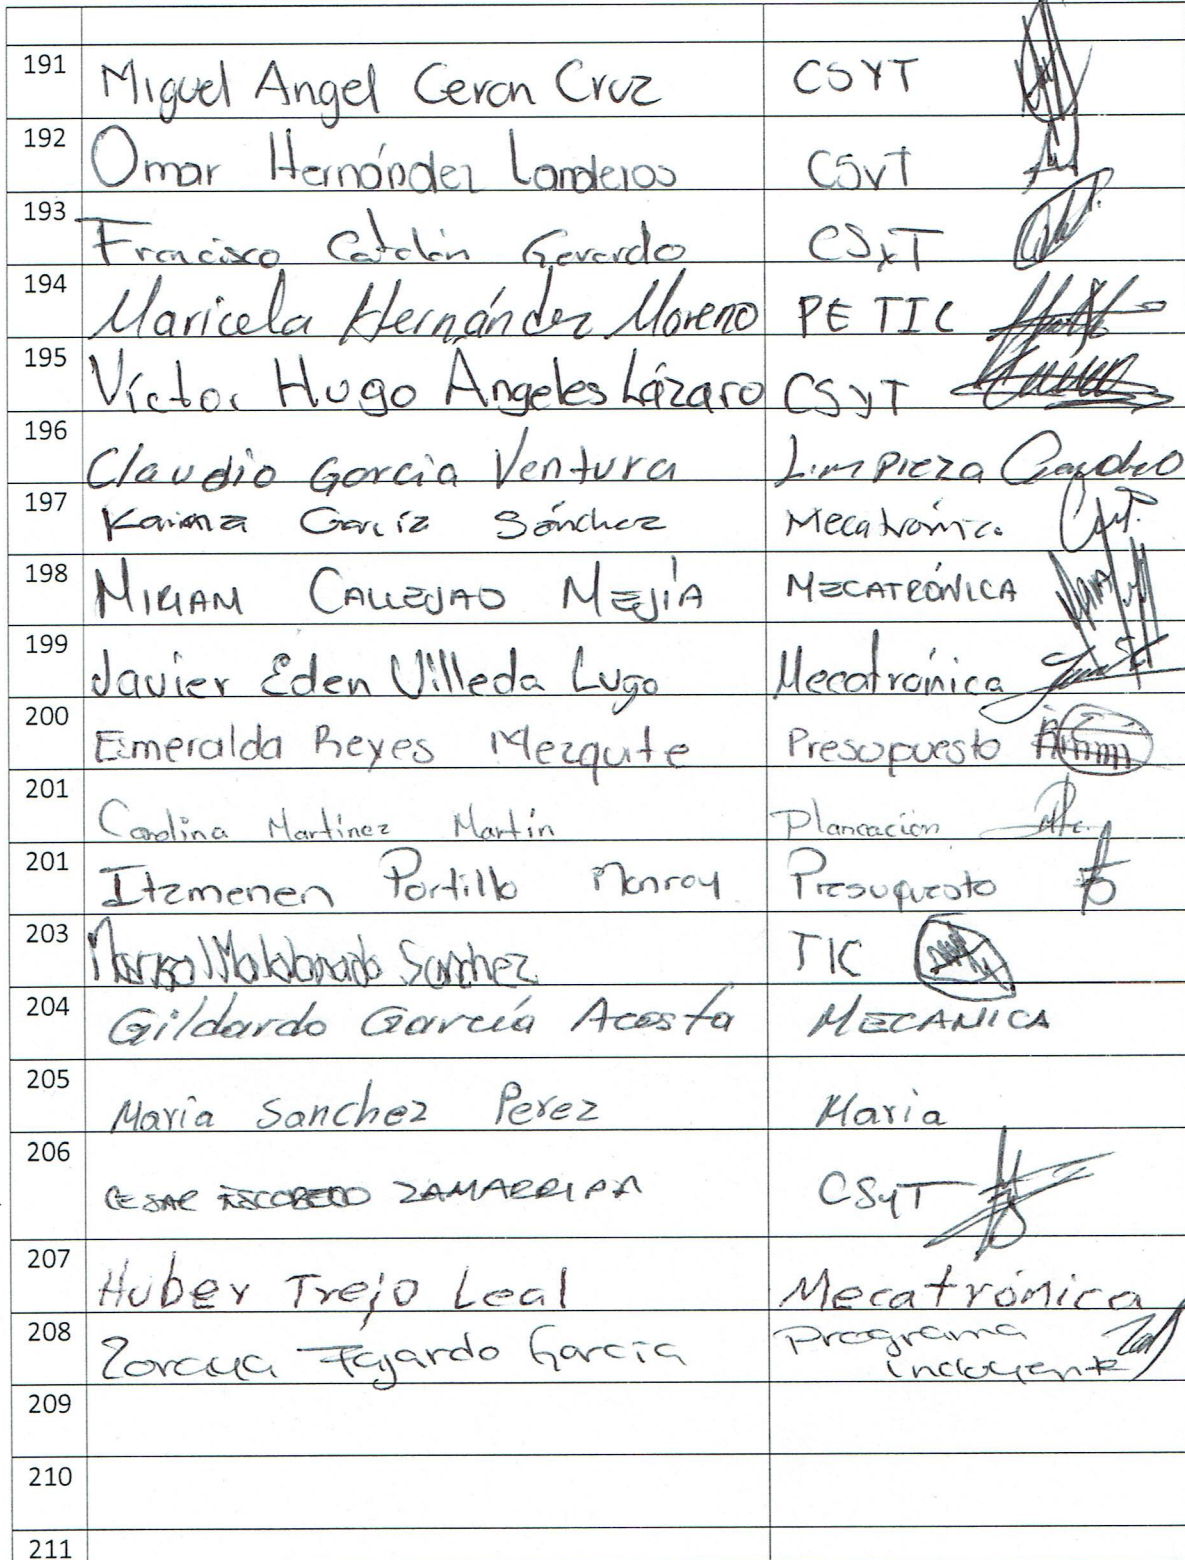 191 Miguel Angel Ceron Cruz CSYT
192 Omar Hernández Landeros CSyT
193 Francisco Catalán Gerardo CSyT
194 Maricela Hernández Moreno PE TIC
195 Víctor Hugo Ángeles Lázaro CSyT
196 Claudio Garcia Ventura Limpieza
197 Karina García Sánchez Mecatrónica
198 MIRIAM CALLEJAS MEJÍA MECATRÓNICA
199 Javier Eden Villeda Lugo Mecatrónica
200 Esmeralda Reyes Mezquite Presupuesto
201 Carolina Martínez Martín Planeación
201 Itzmenen Portillo Monroy Presupuesto
203 Marisol Maldonado Sanchez TIC
204 Gildardo García Acosta MECANICA
205 María Sanchez Perez Maria
206 CESAR ESCOBEDO ZAMARRIPA CSyT
207 Huber Trejo Leal Mecatrónica
208 Zoraya Fajardo García Programa
incluyente
209
210
211